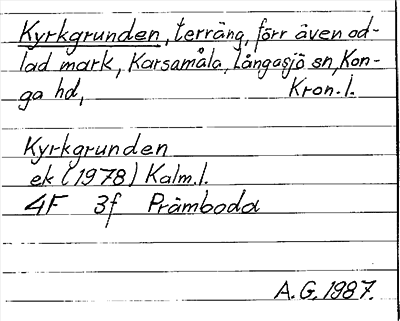 Kyrkgrunden, terräng, förr även od-
lad mark, Karsamåla, Långasjö sn, Kon-
ga hd, Kron. l.
Kyrkgrunden
ek (1978) Kalm. l.
4F 3f Pråmboda
A.G. 1987.